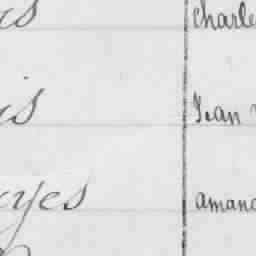 is Charle
is Jean
ayes amand